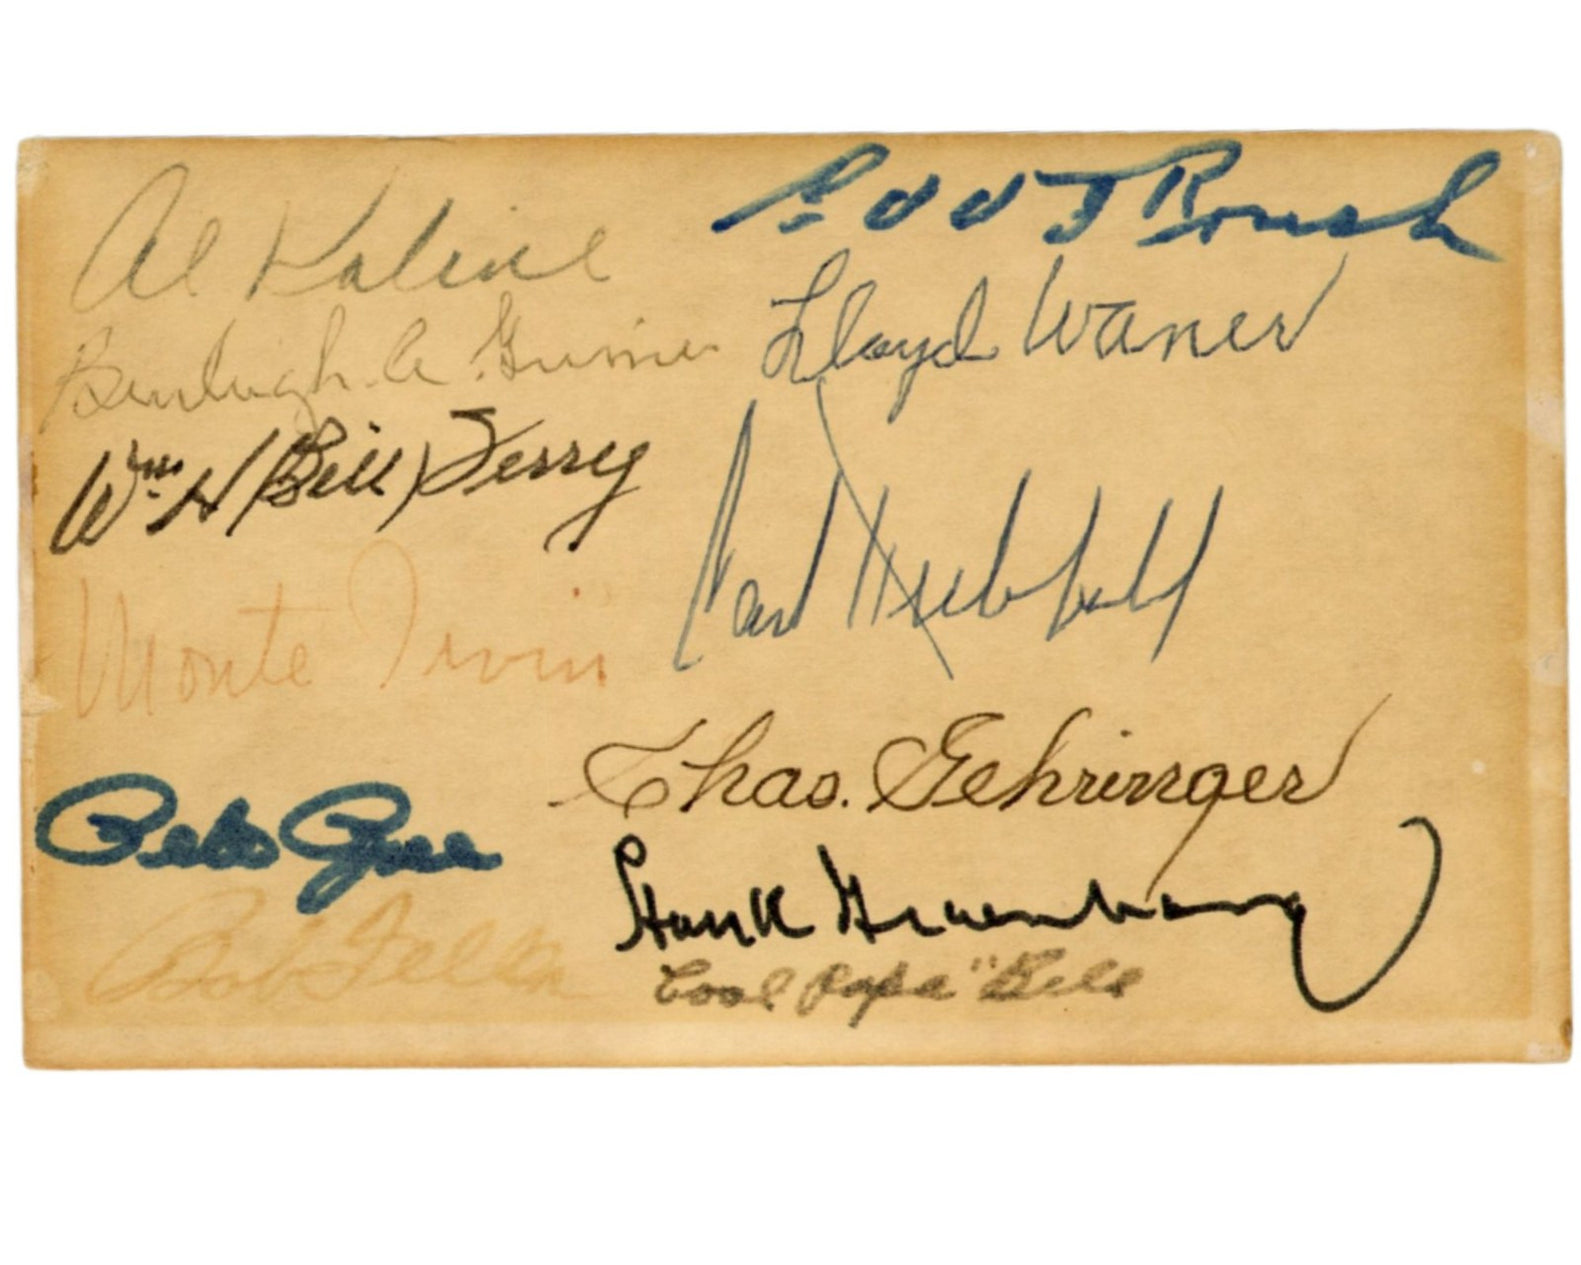 Al Kaline
Burleigh A. Grimes
Wm. H (Bill) Terry
Monte Irvin
Bob Feller
Edd J Roush
Lloyd Waner
Carl Hubbell
Chas. Gehringer
Hank Greenberg
"Cool Papa" Bell